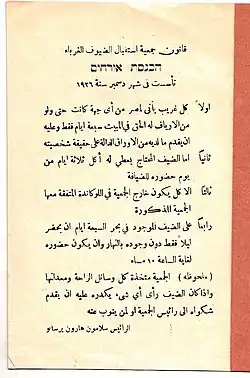 قانون جمعية استقبال الضيوف الغرباء
הכנסת אורחים
تأسست فى شهر دسمبر سنة ١٩٢٦
اولاً كل غريب يأتى لمصر من أى جهة كانت حتى ولو
من الارياف له الحق فى المبيت سبعة أيام فقط وعليه
ان يقدم ما لديه من الاوراق الدالة على حقيقة شخصيته
ثانياً اما الضيف المحتاج يعطى له أكل ثلاثة ايام من
يوم حضوره للضيافة
ثالثاً الاكل يكون خارج الجمعية فى اللوكاندة المتفقة معها
الجمعية المذكورة
رابعاً على الضيف الموجود فى بحر السبعة ايام ان يحضر
ليلاً فقط دون وجوده بالنهار وان يكون حضوره
لغاية الساعة ١٠ مساء
( ملحوظة ) الجمعية متخذة كل وسائل الراحة ومعداتها
واذا كان الضيف رأى أى شىء يكدره عليه ان يقدم
شكواه الى رئيس الجمعية او لمن ينوب عنه
الرئيس سلامون هارون برسانو